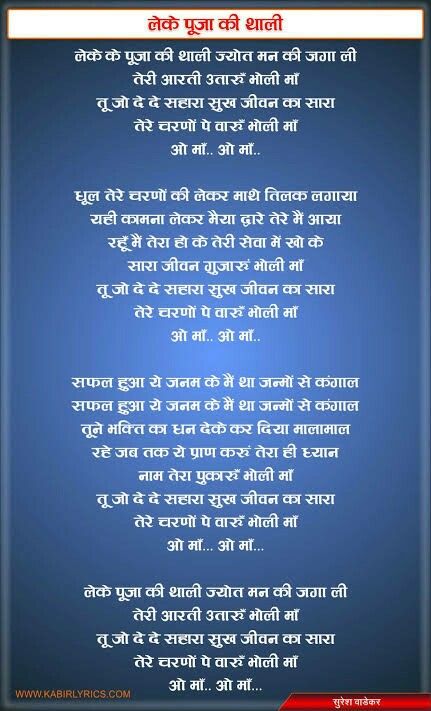 लेके पूजा की थाली
लेके के पूजा की थाली ज्योत मन की जगा ली
तेरी आरती उतारुँ भोली माँ
तू जो दे दे सहारा सुख जीवन का सारा
तेरे चरणों पे वारुँ भोली माँ
ओ माँ.. ओ माँ..
धूल तेरे चरणों की लेकर माथे तिलक लगाया
यही कामना लेकर मैया द्वारे तेरे मैं आया
रहूँ मैं तेरा हो के तेरी सेवा में खो के
सारा जीवन गुजारुं भोली माँ
तू जो दे दे सहारा सुख जीवन का सारा
तेरे चरणों पे वारुँ भोली माँ
ओ माँ.. ओ माँ..
सफल हुआ ये जनम के मैं था जन्मों से कंगाल
सफल हुआ ये जनम के मैं था जन्मों से कंगाल
तूने भक्ति का धन देके कर दिया मालामाल
रहे जब तक ये प्राण करुं तेरा ही ध्यान
नाम तेरा पुकारुँ भोली माँ
तू जो दे दे सहारा सुख जीवन का सारा
तेरे चरणों पे वारुँ भोली माँ
ओ माँ... ओ माँ...
लेके पूजा की थाली ज्योत मन की जगा ली
तेरी आरती उतारुँ भोली माँ
तू जो दे दे सहारा सुख जीवन का सारा
तेरे चरणों पे वारुँ भोली माँ
ओ माँ.. ओ माँ...
WWW.KABIRLYRICS.COM
सुरेश वाडेकर